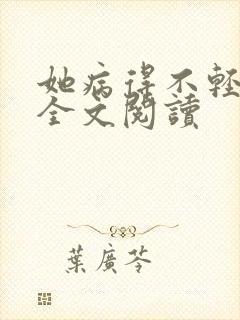 她病得不輕
全文閱讀
葉廣芩